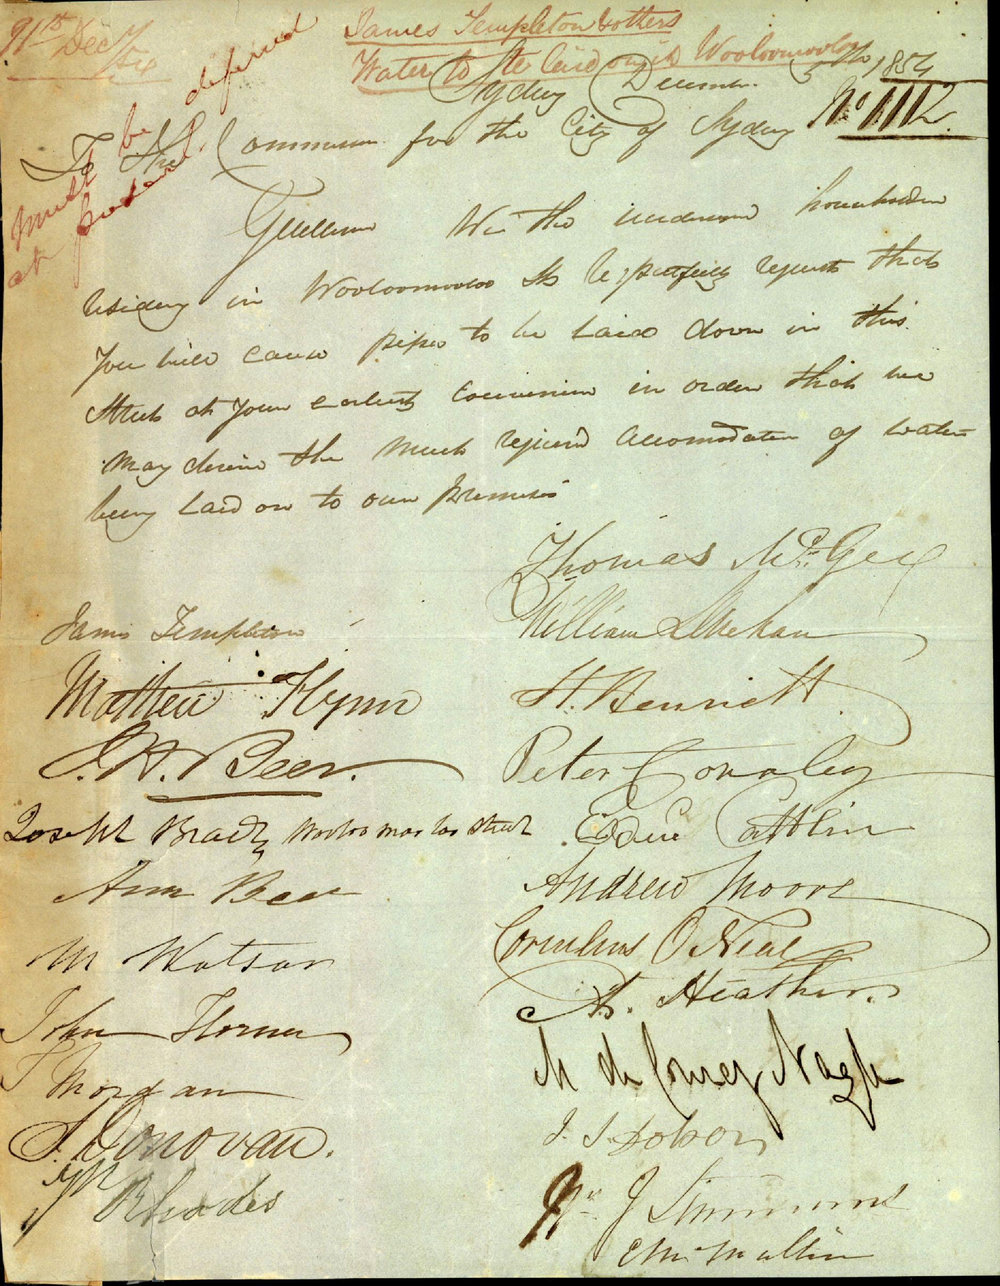 9th Decr /54
James Templeton & others
Water to be laid on in Wooloomooloo
Must be deferred
at present
Sydney December 5th 1854
No 1112
To the Commissn for the City of Sydney
Gentlemen We the undersigned householders
residing in Wooloomooloo St Respectfully request that
you will cause pipes to be laid down in this
Street at your earliest convenience in order that we
may derive the much required accomodation of water
being laid on to our premises
Thomas McGee
James Templeton
William Shehan
Mathew Flynn
H. Bennett
J. H. Beer.
Peter Conaley
Joseph Brady Wooloomooloo Street
Cattlin
Ann Beer
Andrew Moore
Cornelius O'Neal
M Watson
Heather.
John Horner
M de Courcy Nagle
Morgan
J. S. Dobson
Donovan.
Rhodes
J Simmons
McMullin